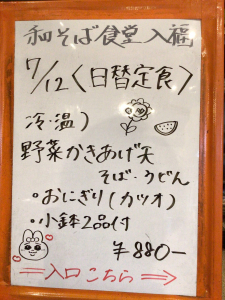 和そば食堂入福
7/12〈日替定食〉
冷・温）
野菜かきあげ天
そば・うどん
・おにぎり（カツオ）
・小鉢2品付
¥880-
⇒入口こちら⇒